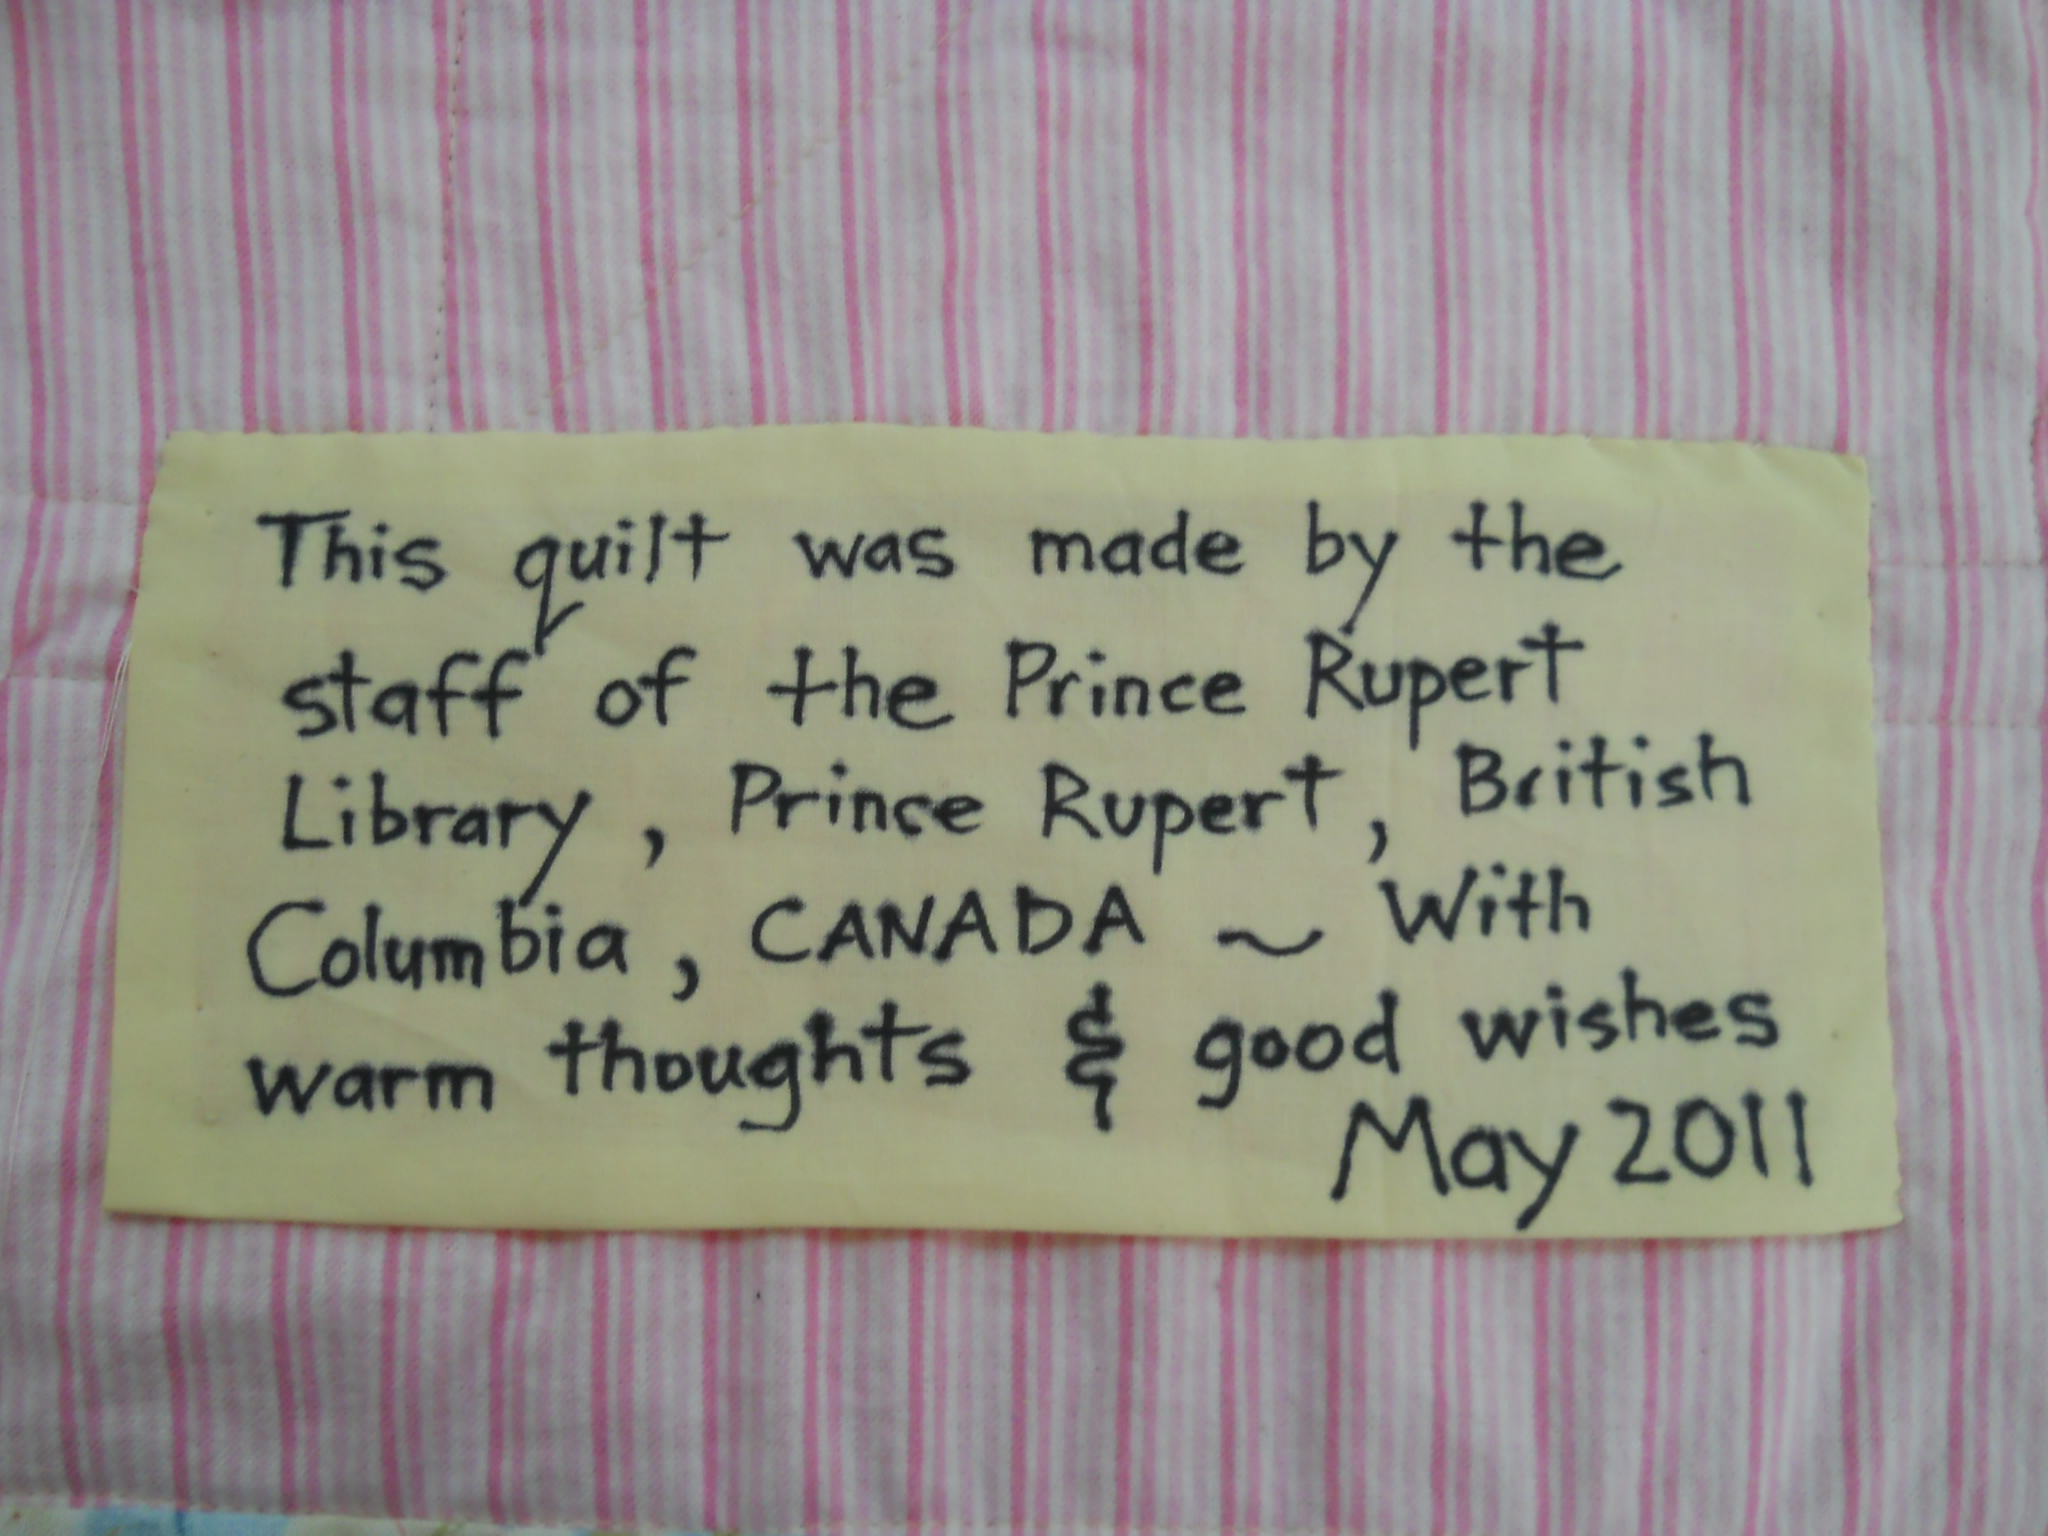 This quilt was made by the
staff of the Prince Rupert
Library, Prince Rupert, British
Columbia, CANADA ~ With
warm thoughts & good wishes
May 2011